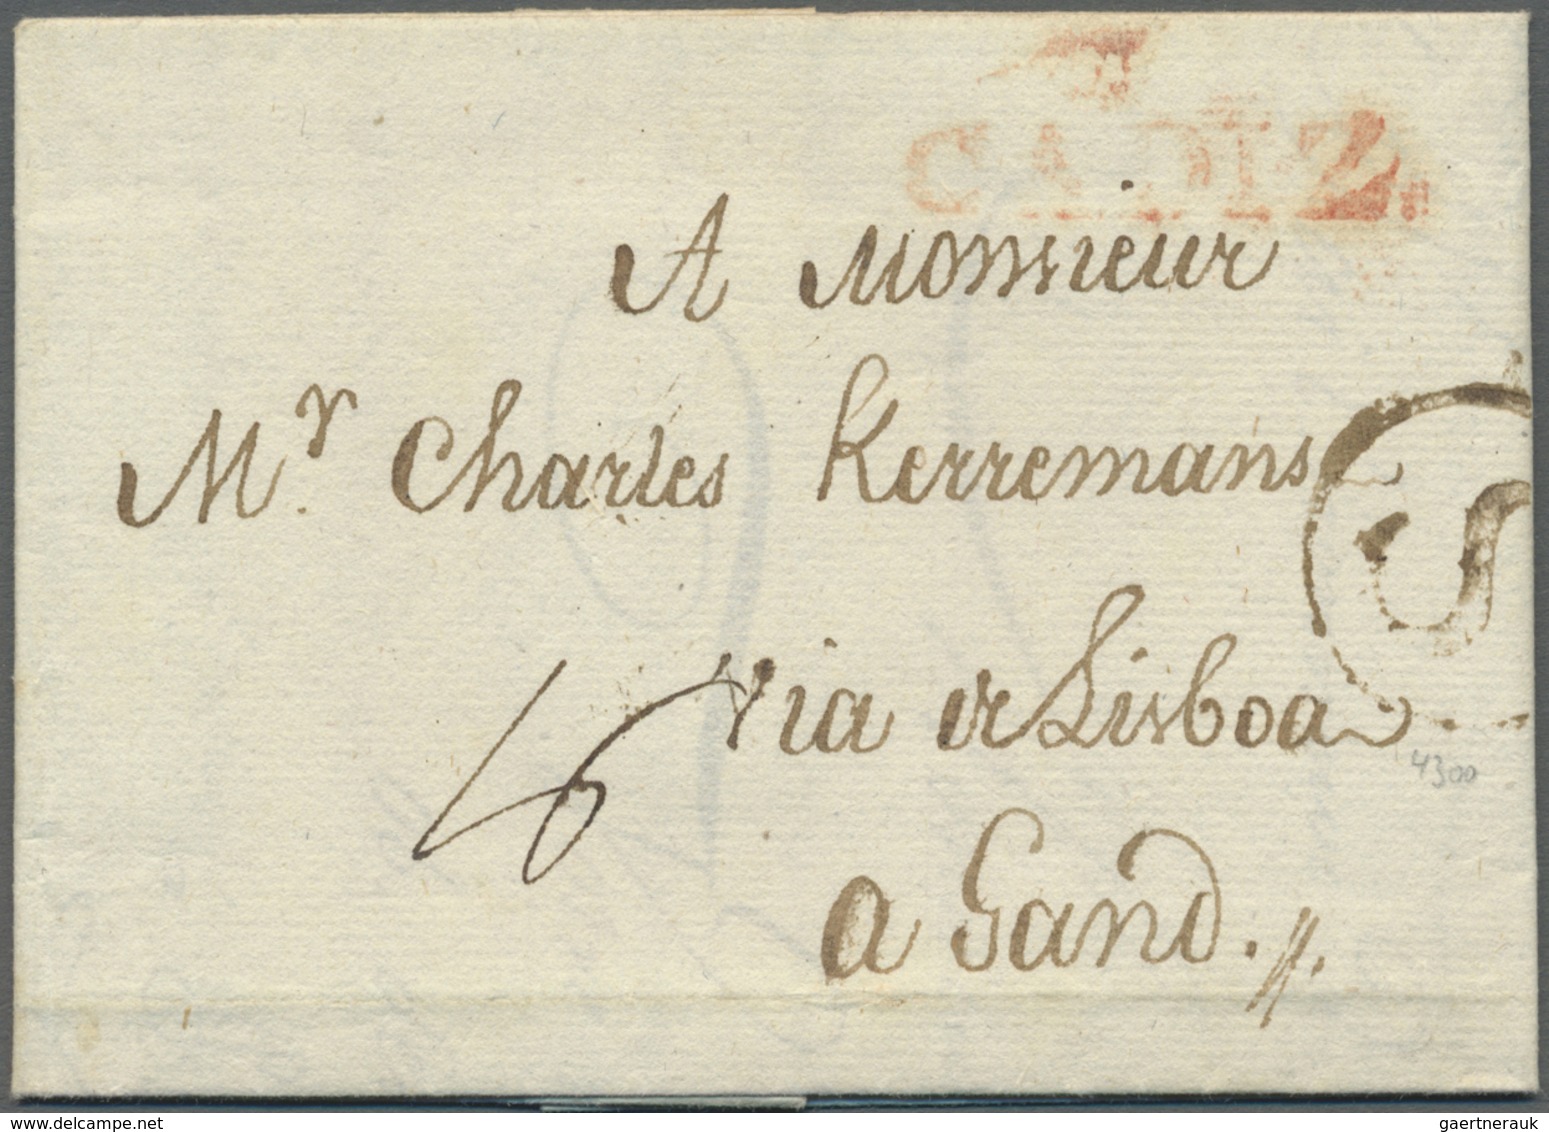 CADIZ.
A Monsieur
Mr. Charles Kerremans
S
16
via de Lisboa
4300
a Gand.
gaertnerauk @ delcampe.net